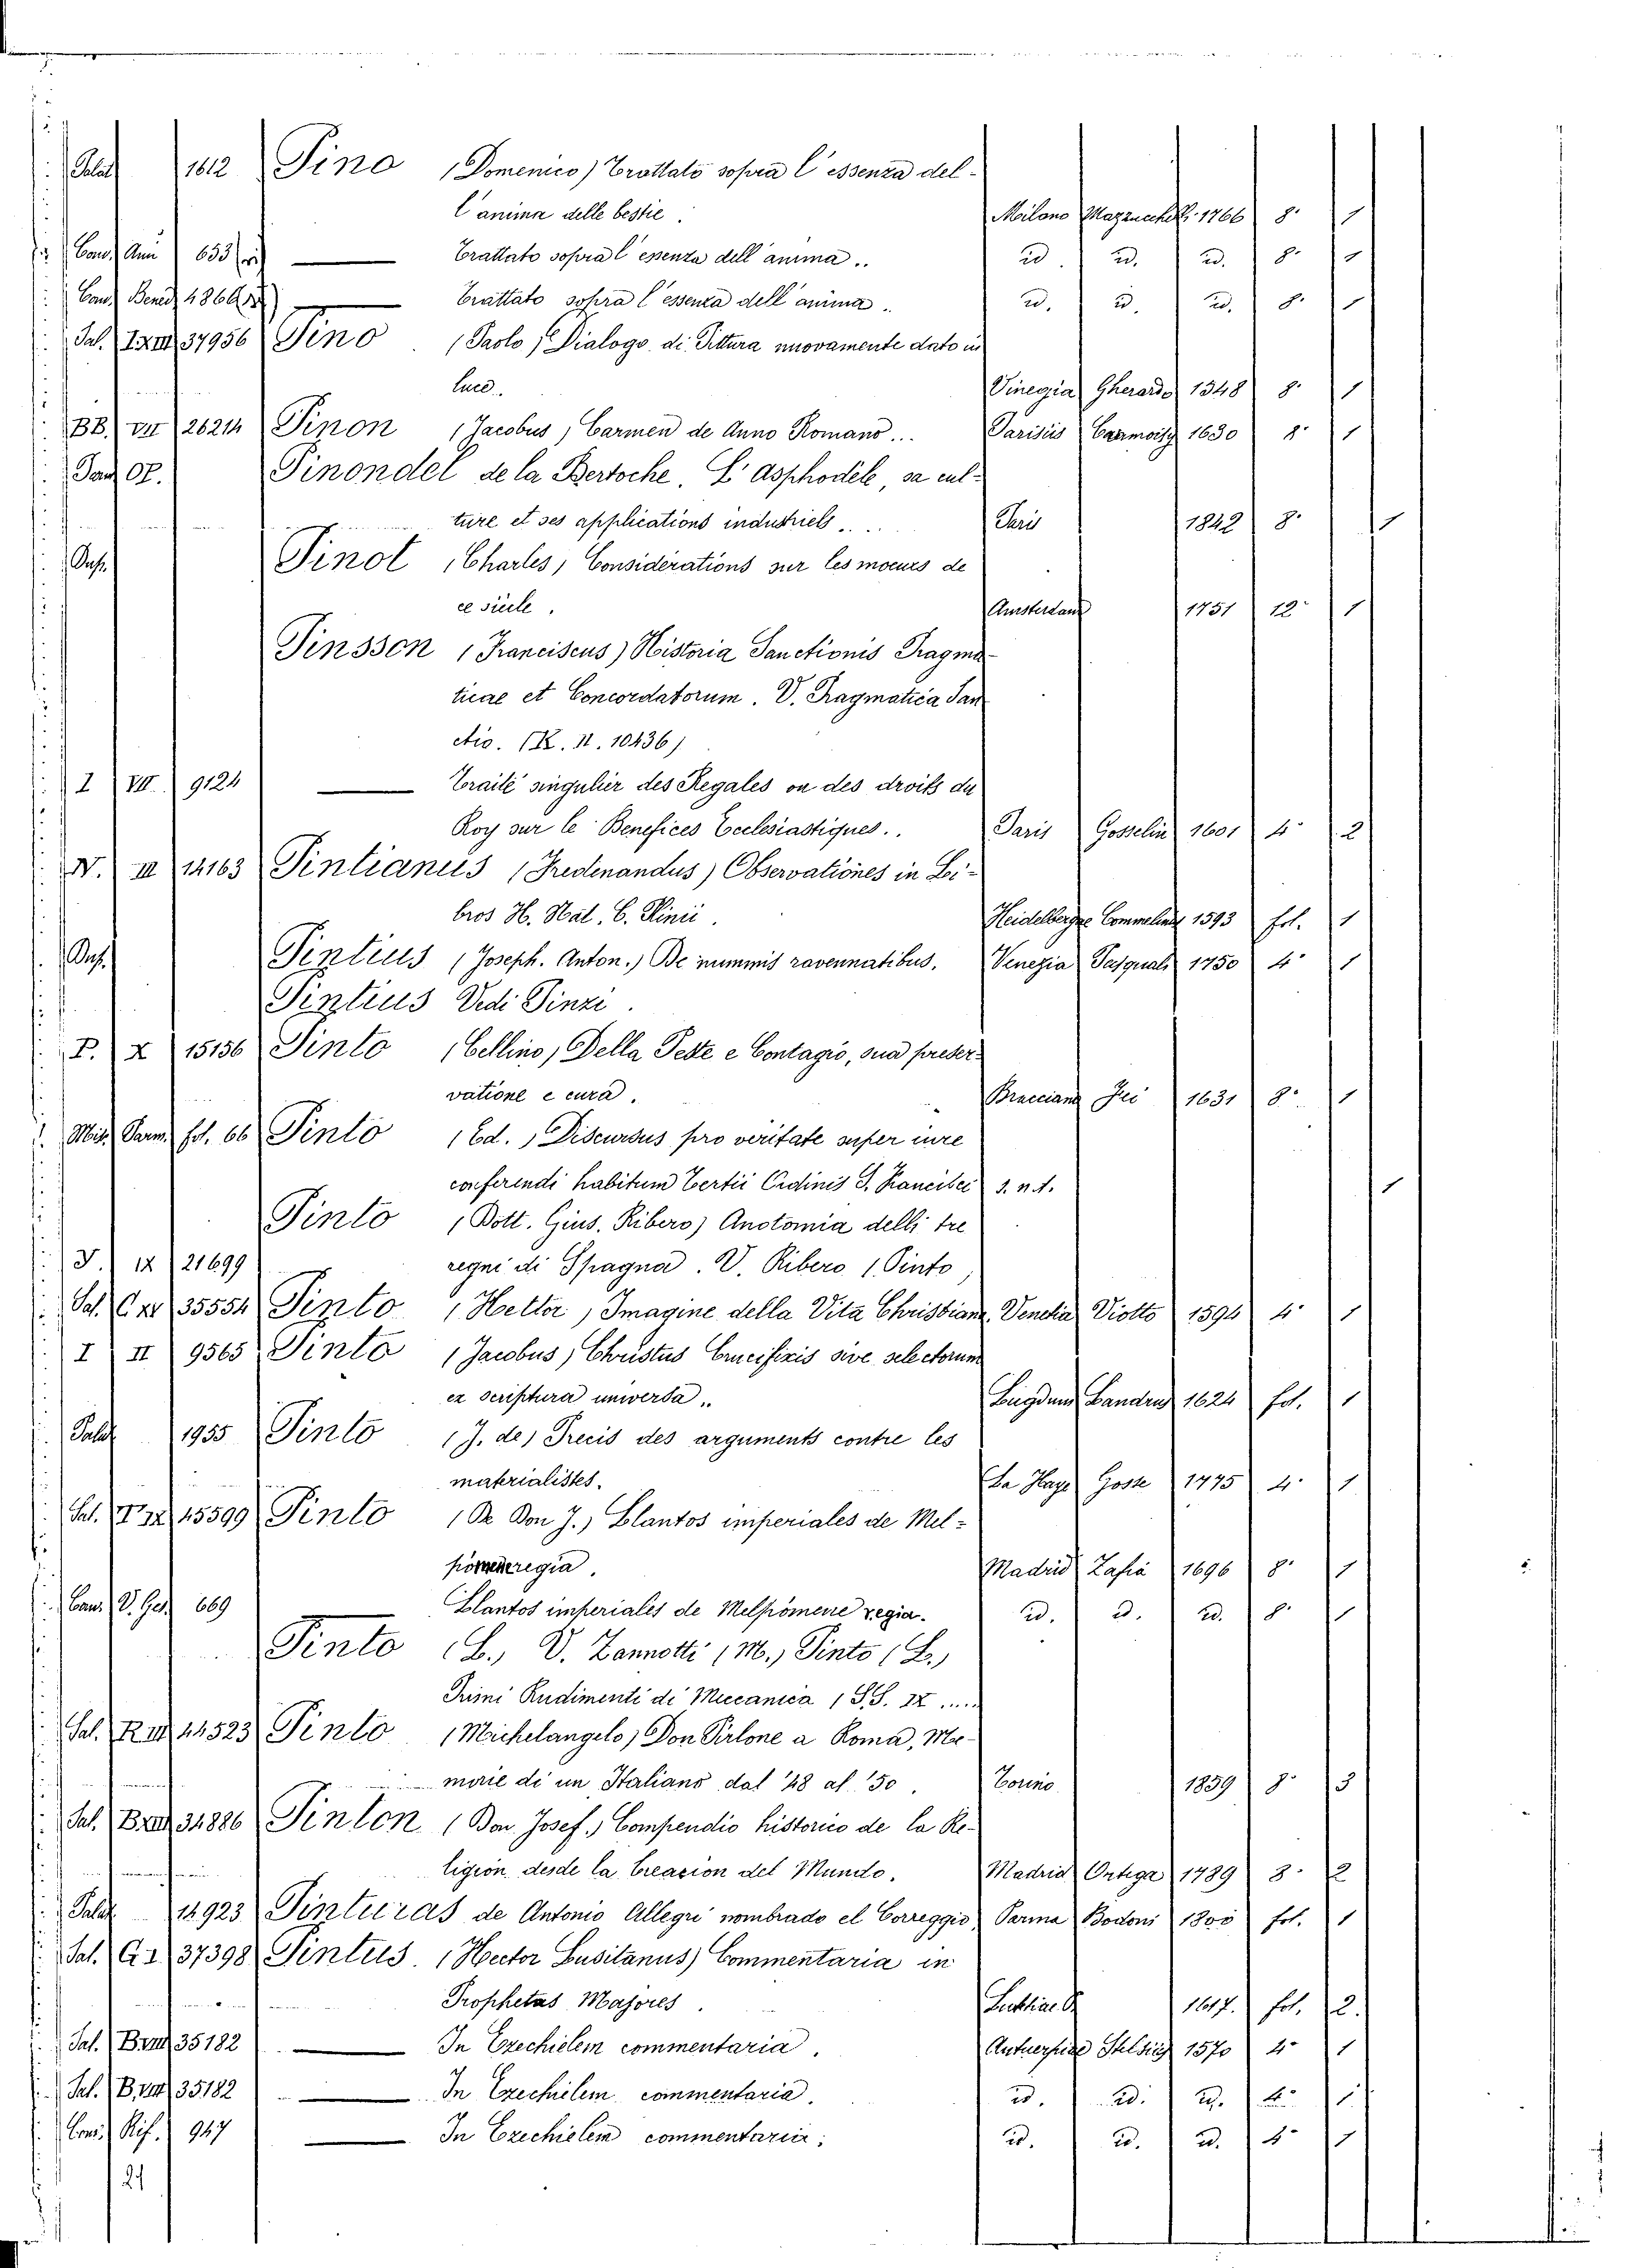 Palat 1612 Pino (Domenico) Trattato sopra l'essenza del-
l'anima delle bestie. Milano 1766 8° 1
633 Trattato sopra l'essenza dell'anima.. id. id. id. 8° 1
Trattato sopra l'essenza dell'anima. id. id. id. 8° 1
Sal. 37956 Pino (Paolo) Dialogo di Pittura nuovamente dato in
luce. Vinegia Gherardo 1548 8° 1
BB. VII 26214 Pinon (Jacobus) Carmen de Anno Romano... Parisiis 1630 8° 1
Pinondel de la Bertoche. L'Asphodèle, sa cul-
ture et ses applications industriels.... Paris 1842 8° 1
Pinot (Charles) Considérations sur les moeurs de
ce siècle. Amsterdam 1751 12° 1
Pinsson (Franciscus) Historia Sanctionis Pragma-
ticae et Concordatorum. V. Pragmatica San
ctio. (K. II. 10436)
I VII. 9124 Traité singulier des Regales ou des droits du
Roy sur le Benefices Ecclesiastiques.. Paris Gosselin 1601 4° 2
N. III 14163 Pintianus (Fredenandus) Observationes in Li-
bros H. Nat. C. Plinii. 1593 fol. 1
Pintius (Joseph. Anton.) De nummis ravennatibus. Venezia Pasquali 1750 4° 1
Pintius Vedi Pinzi.
P. X 15156 Pinto (Cellino) Della Peste e Contagio, sua preser-
vatione e cura. Bracciano 1631 8° 1
fol. 66 Pinto (Ed.) Discursus pro veritate super iure
conferendi habitum Tertii Ordinis S. Francisci s. n. t. 1
Pinto (Dott. Gius. Ribero) Anotomia delli tre
J. IX 21699 regni di Spagna. V. Ribero (Pinto)
Sal. 35554 Pinto (Hettor) Imagine della Vita Christiana. Venetia Viotto 1594 4° 1
I II 9565 Pinto (Jacobus) Christus Crucifixis sive selectorum
ex scriptura universa.. 1624 fol. 1
Palat 1955 Pinto (J. de) Precis des arguments contre les
materialistes. La Haye Gosse 1775 4° 1
Sal. 45599 Pinto (De Don J.) Llantos imperiales de Mel-
pomene regia. Madrid 1696 8° 1
669 Llantos imperiales de Melpómene regia. id. id. id. 8° 1
Pinto (L.) V. Zannotti (M.) Pinto (L.)
Primi Rudimenti di Meccanica (S.S. IX .....
Sal. 44523 Pinto (Michelangelo) Don Pirlone a Roma, Me-
morie di un Italiano dal '48 al '50. Torino 1859 8° 3
Sal. 34886 Pinton (Don Josef.) Compendio historico de la Re-
ligion desde la Creacion del Mundo. Madrid Ortega 1789 8° 2
Palat 14923 Pinturas de Antonio Allegri nombrado el Correggio Parma Bodoni 1800 fol. 1
Sal. G. I 37398 Pintus. (Hector Lusitanus) Commentaria in
Prophetas Majores. 1617. fol. 2.
Sal. 35182 In Ezechielem commentaria. Antuerpiae 1570 4° 1
Sal. 35182 In Ezechielem commentaria. id. id. id. 4° 1
947 In Ezechielem commentaria. id. id. id. 4° 1